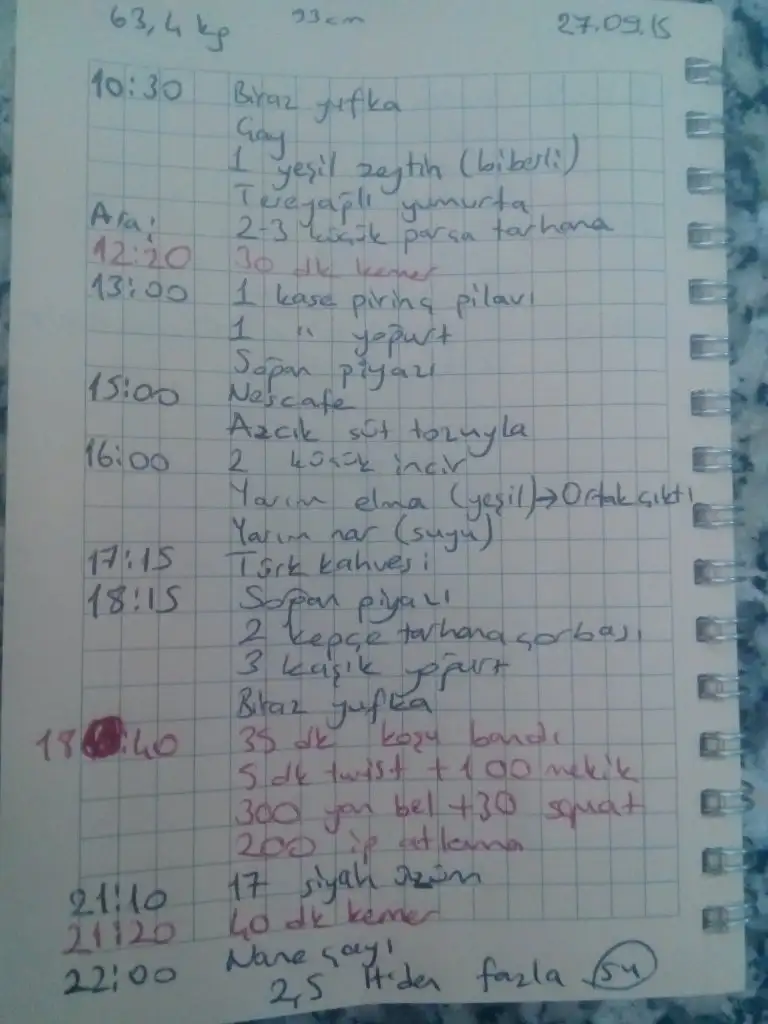 63,4 kg 93cm 27.09.15
10:30 Biraz yufka
Çay
1 yeşil zeytin (biberli)
Tereyağlı yumurta
Ara: 2-3 küçük parça tarhana
12:20 30 dk kemer
13:00 1 kase pirinç pilavı
1 " yoğurt
Soğan piyazı
15:00 Nescafe
Azcık süt tozuyla
16:00 2 küçük incir
Yarım elma (yeşil) → Ortak çıktı
Yarım nar (suyu)
17:15 Türk kahvesi
18:15 Soğan piyazı
2 kepçe tarhana çorbası
3 kaşık yoğurt
Biraz yufka
18:40 35 dk koşu bandı
5 dk twist + 100 mekik
300 yan bel + 30 squat
200 ip atlama
21:10 17 siyah üzüm
21:20 40 dk kemer
22:00 Nane çayı
2,5 lt'den fazla su